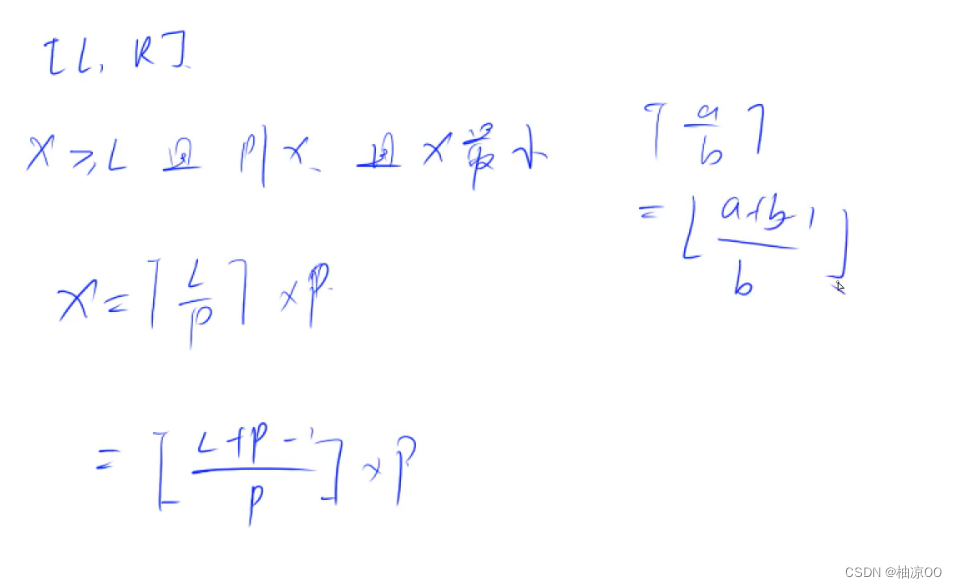 [L, R]
X ≥ L 且 P|X 且 X 最小
X = ⌈L/P⌉ × P
= ⌊(L+P-1)/P⌋ × P
⌈a/b⌉
= ⌊(a+b-1)/b⌋
CSDN @柚凉OO